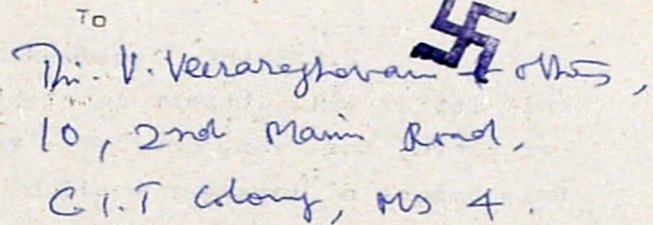 To
Thi. V. Veeraraghavan & others,
10, 2nd Main Road,
C.I.T Colony, MS 4.